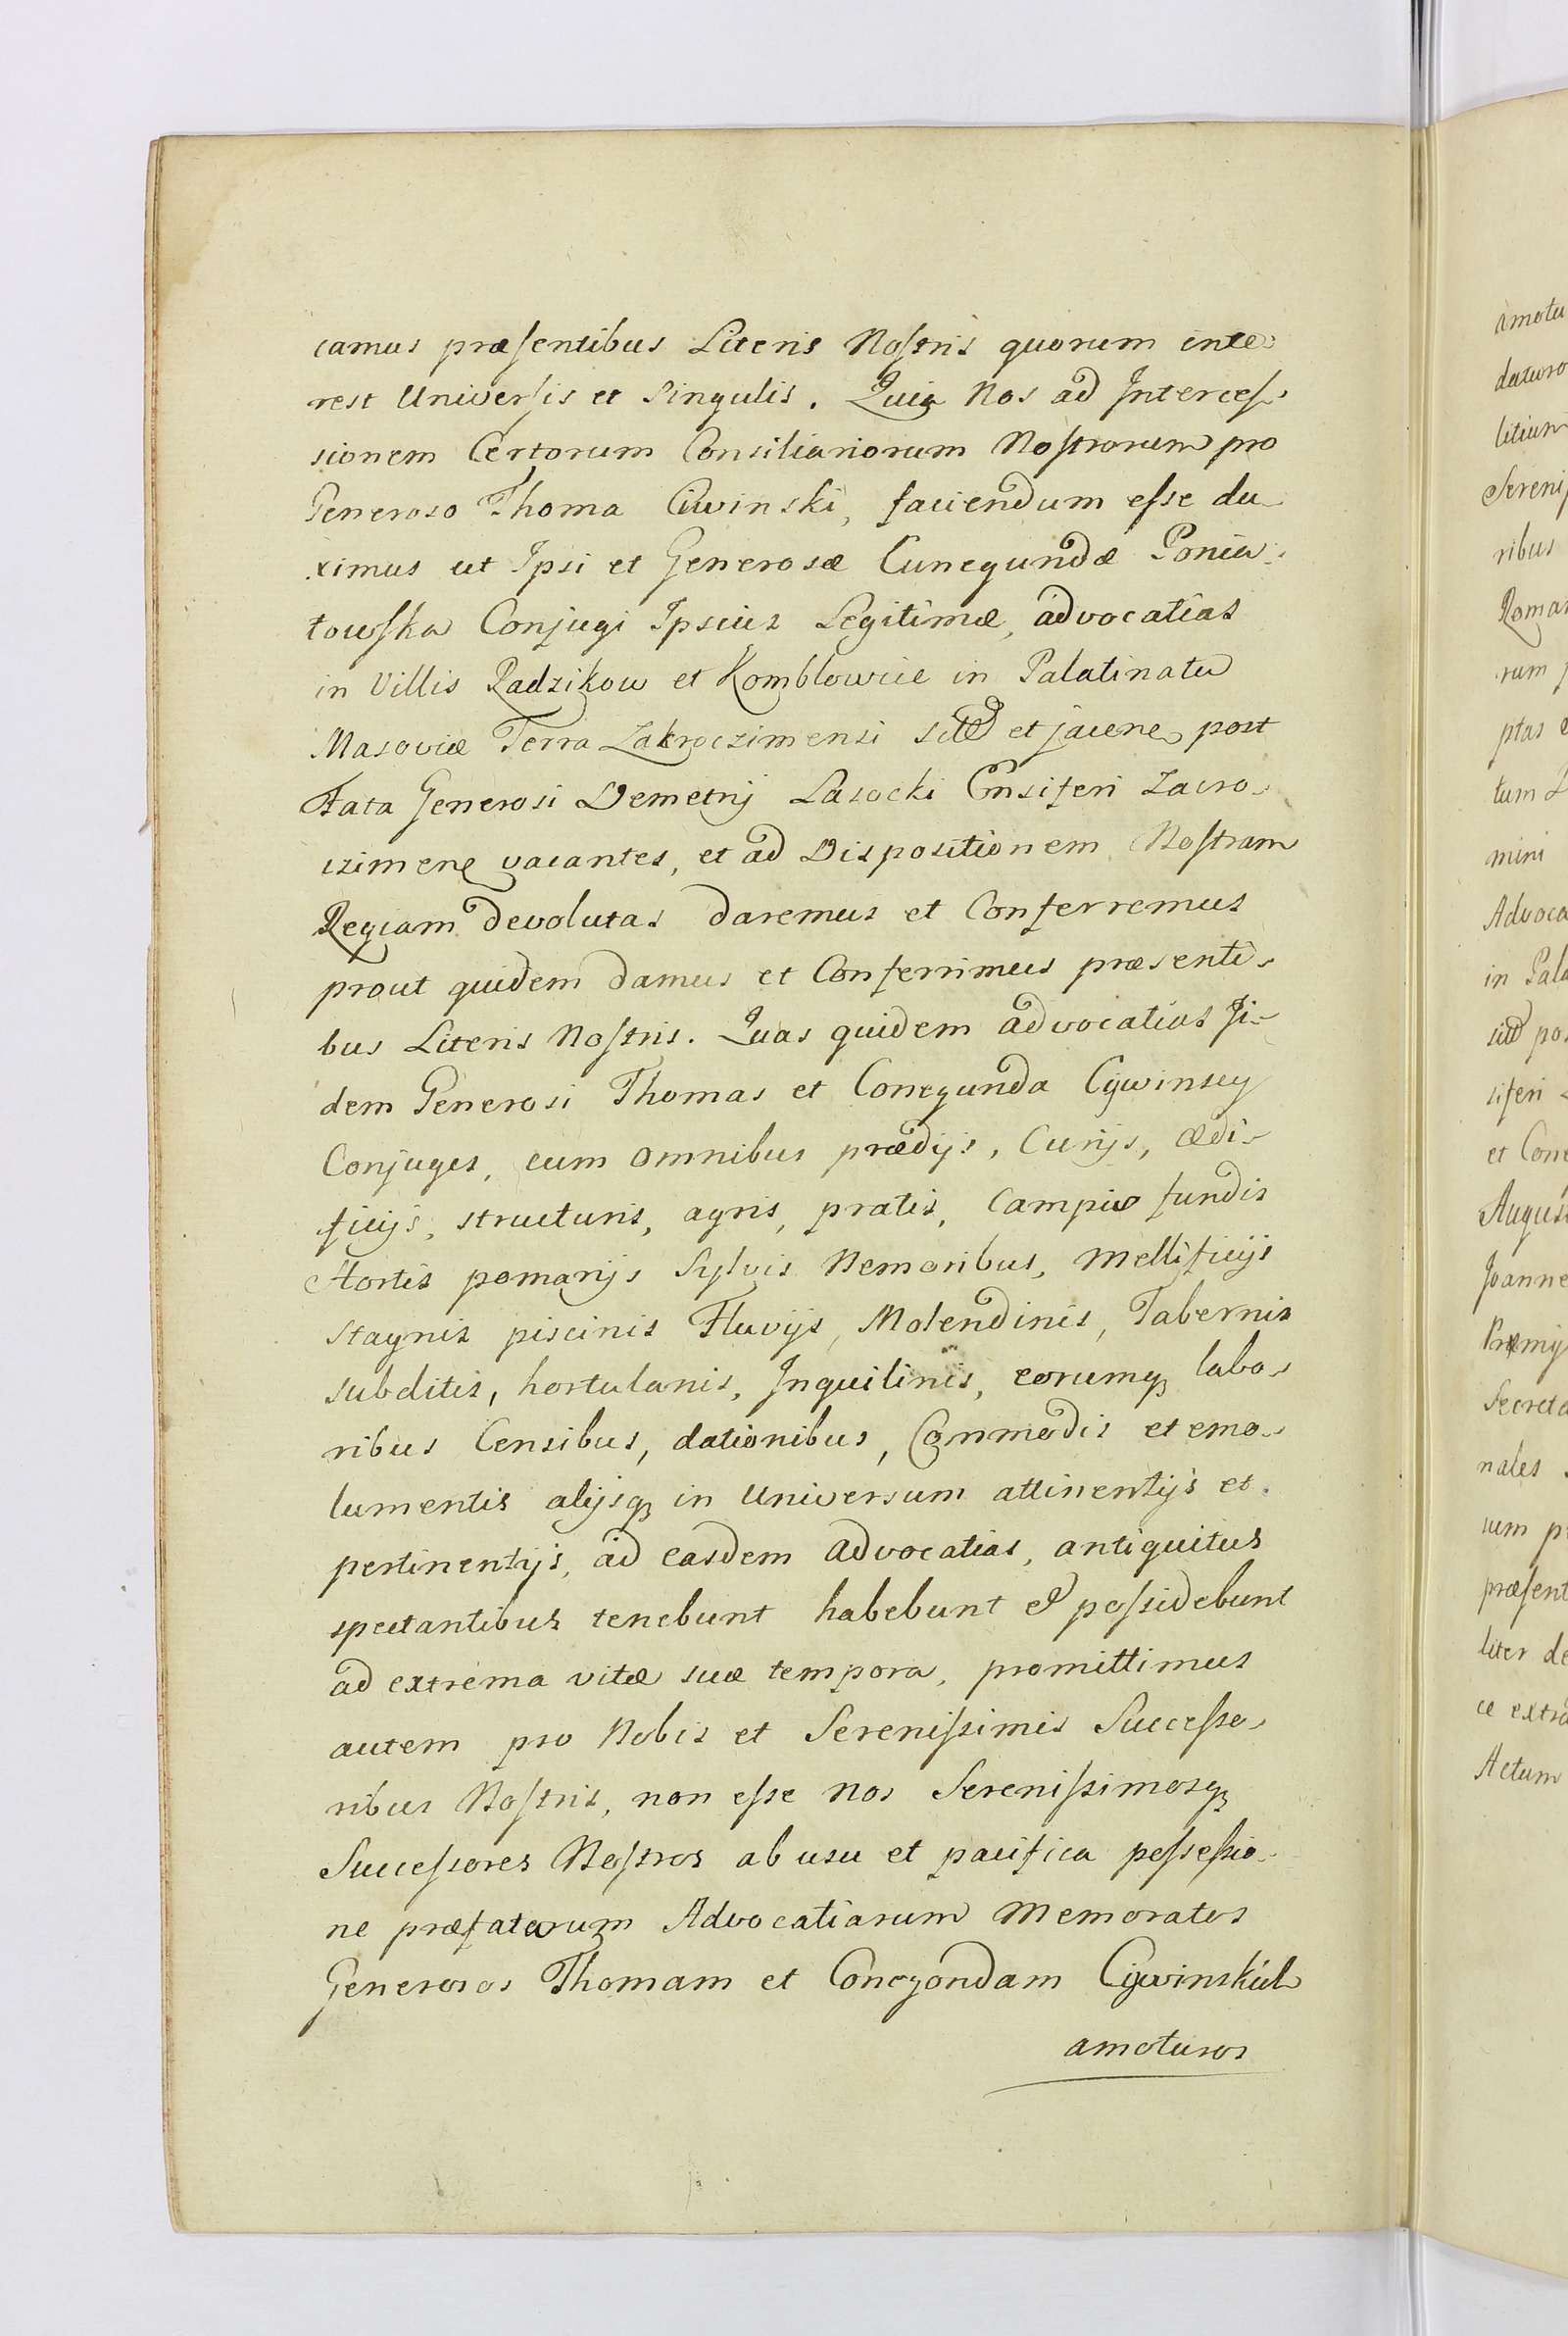 camus præsentibus Literis Nostris quorum inte-
rest Universis et Singulis. Quia Nos ad Interces-
sionem Certorum Consiliariorum Nostrorum pro
Generoso Thoma Ciwinski, faciendum esse du-
ximus ut Ipsi et Generosæ Cunegundæ Ponia-
towska Conjugi Ipsius Legitimæ, advocatias
in Villis Radzikow et Komblowice in Palatinatu
Masoviæ Terra Zakroczimensi sitas et jacene post
Fata Generosi Demetrij Lasocki Ensiferi Zacro-
czimene vacantes, et ad Dispositionem Nostram
Regiam devolutas daremus et Conferremus
prout quidem damus et Conferrimus præsenti-
bus Literis Nostris. Quas quidem advocatias Ii-
dem Generosi Thomas et Conegunda Cijwinscy
Conjuges, cum omnibus prædijs, Curijs, ædi-
ficijs, structuris, agris, pratis, Campis fundis
Hortis pomarijs Sylvis Nemoribus, Mellificijs
Stagnis piscinis Fluvijs, Molendinis, Tabernis
subditis, hortulanis, Inquilinis, eorumq labo-
ribus Censibus, dationibus, Commodis et emo-
lumentis alijsq in Universum attinentijs et
pertinentijs, ad easdem advocatias, antiquitus
spectantibus tenebunt habebunt et possidebunt
ad extrema vitæ suæ tempora, promittimus
autem pro Nobis et Serenissimis Successo-
ribus Nostris, non esse nos Serenissimosq
Successores Nostros ab usu et pacifica possessio-
ne præfatarum Advocatiarum Memoratos
Generosos Thomam et Conegondam Cijwinskich
amoturos
amotu
daturo
litium
Sereni
ribus
Roman
rum p
ptas e
tum
mini
Advoca
in Pala
sitas pos
siferi
et Cone
August
Joanne
Præmij
Secreta
nales
rum pr
præsent
liter de
ce extra
Actum